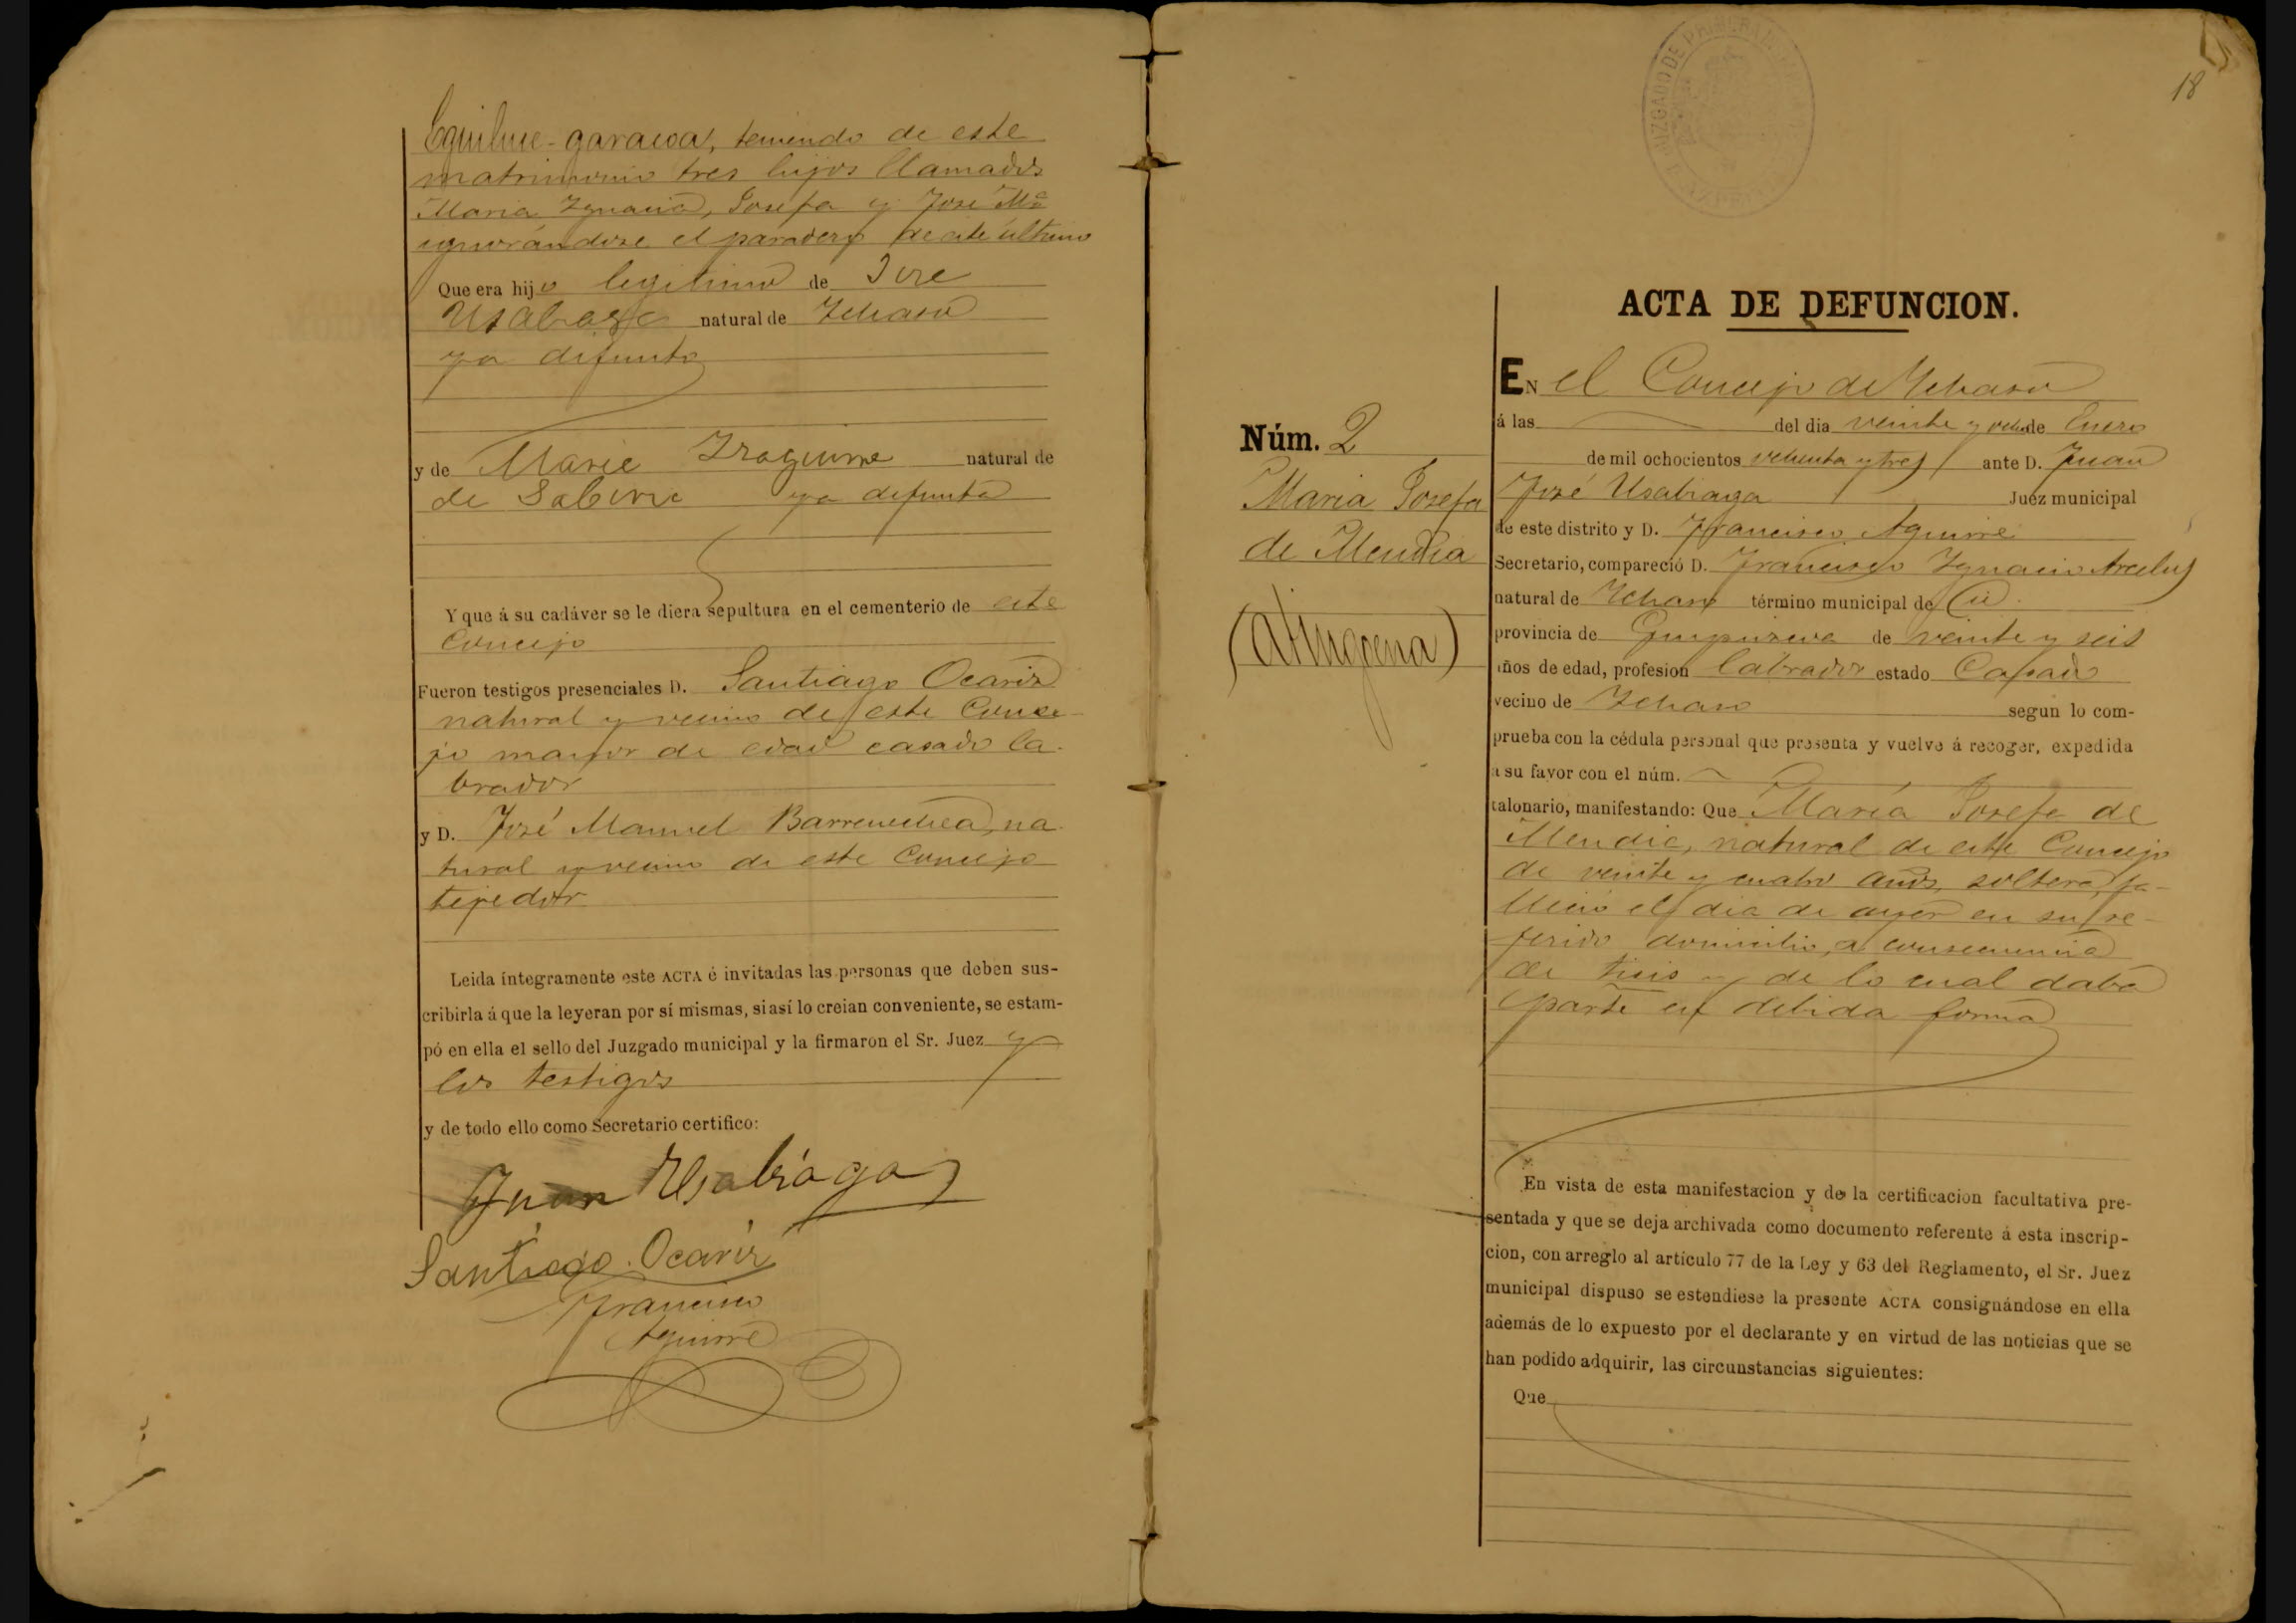 garaicoa, teniendo de este
matrimonio tres hijos llamados
Maria Ygnacia, Josefa y José Mª
ignorándose el paradero de este último
Que era hijo legitimo de Jose
Usabiaga natural de Ichaso
ya difunto
y de Maria Izaguirre natural de
de Gabiria ya difunta
Y que á su cadáver se le diera sepultura en el cementerio de este
Concejo
Fueron testigos presenciales D. Santiago Ocariz
natural y vecino de este Conce-
jo mayor de edad casado la-
brador
y D. José Manuel Barrenechea, na-
tural y vecino de este Concejo
tejedor
Leida íntegramente este ACTA é invitadas las personas que deben sus-
cribirla á que la leyeran por sí mismas, si así lo creian conveniente, se estam-
pó en ella el sello del Juzgado municipal y la firmaron el Sr. Juez y
los testigos
y de todo ello como Secretario certifico:
Juan Usabiaga
Santiago Ocariz
Francisco
Aguirre
18
JUZGADO DE PRIMERA
ACTA DE DEFUNCION.
Núm. 2
Maria Josefa
de Mendia
EN el Concejo de Ychaso
á las del dia veinte y ocho de Enero
de mil ochocientos ochenta y tres ante D. Juan
José Usabiaga Juez municipal
de este distrito y D. Francisco Aguirre
Secretario, compareció D. Francisco Ygnacio Arcelus
natural de Ychaso término municipal de id.
provincia de Guipuzcoa de veinte y seis
años de edad, profesion labrador estado Casado
vecino de Ichaso segun lo com-
prueba con la cédula personal que presenta y vuelve á recoger, expedida
a su favor con el núm.
talonario, manifestando: Que María Josefa de
Mendia, natural de este Concejo
de veinte y cuatro años, soltera, fa-
lleció el dia de ayer en su re-
ferido domicilio, a consecuencia
de tisis y de lo cual daba
parte en debida forma
En vista de esta manifestacion y de la certificacion facultativa pre-
sentada y que se deja archivada como documento referente á esta inscrip-
cion, con arreglo al artículo 77 de la Ley y 63 del Reglamento, el Sr. Juez
municipal dispuso se estendiese la presente ACTA consignándose en ella
además de lo expuesto por el declarante y en virtud de las noticias que se
han podido adquirir, las circunstancias siguientes:
Que